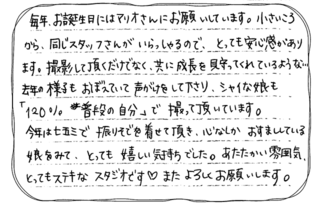 毎年、お誕生日にはマリオさんにお願いしています。小さいころ
から、同じスタッフさんがいらっしゃるので、とっても安心感があり
ます。撮影して頂くだけでなく、共に成長を見守ってくれているような…
去年の様子もおぼえていて声がけをして下さり、シャイな娘も
「120%。普段の自分」で撮って頂いています。
今年は七五三で振りそでを着せて頂き、心なしかおすましている
娘をみて、とっても嬉しい気持ちでした。あたたかい雰囲気、
とってもステキなスタジオです♡またよろしくお願いします。